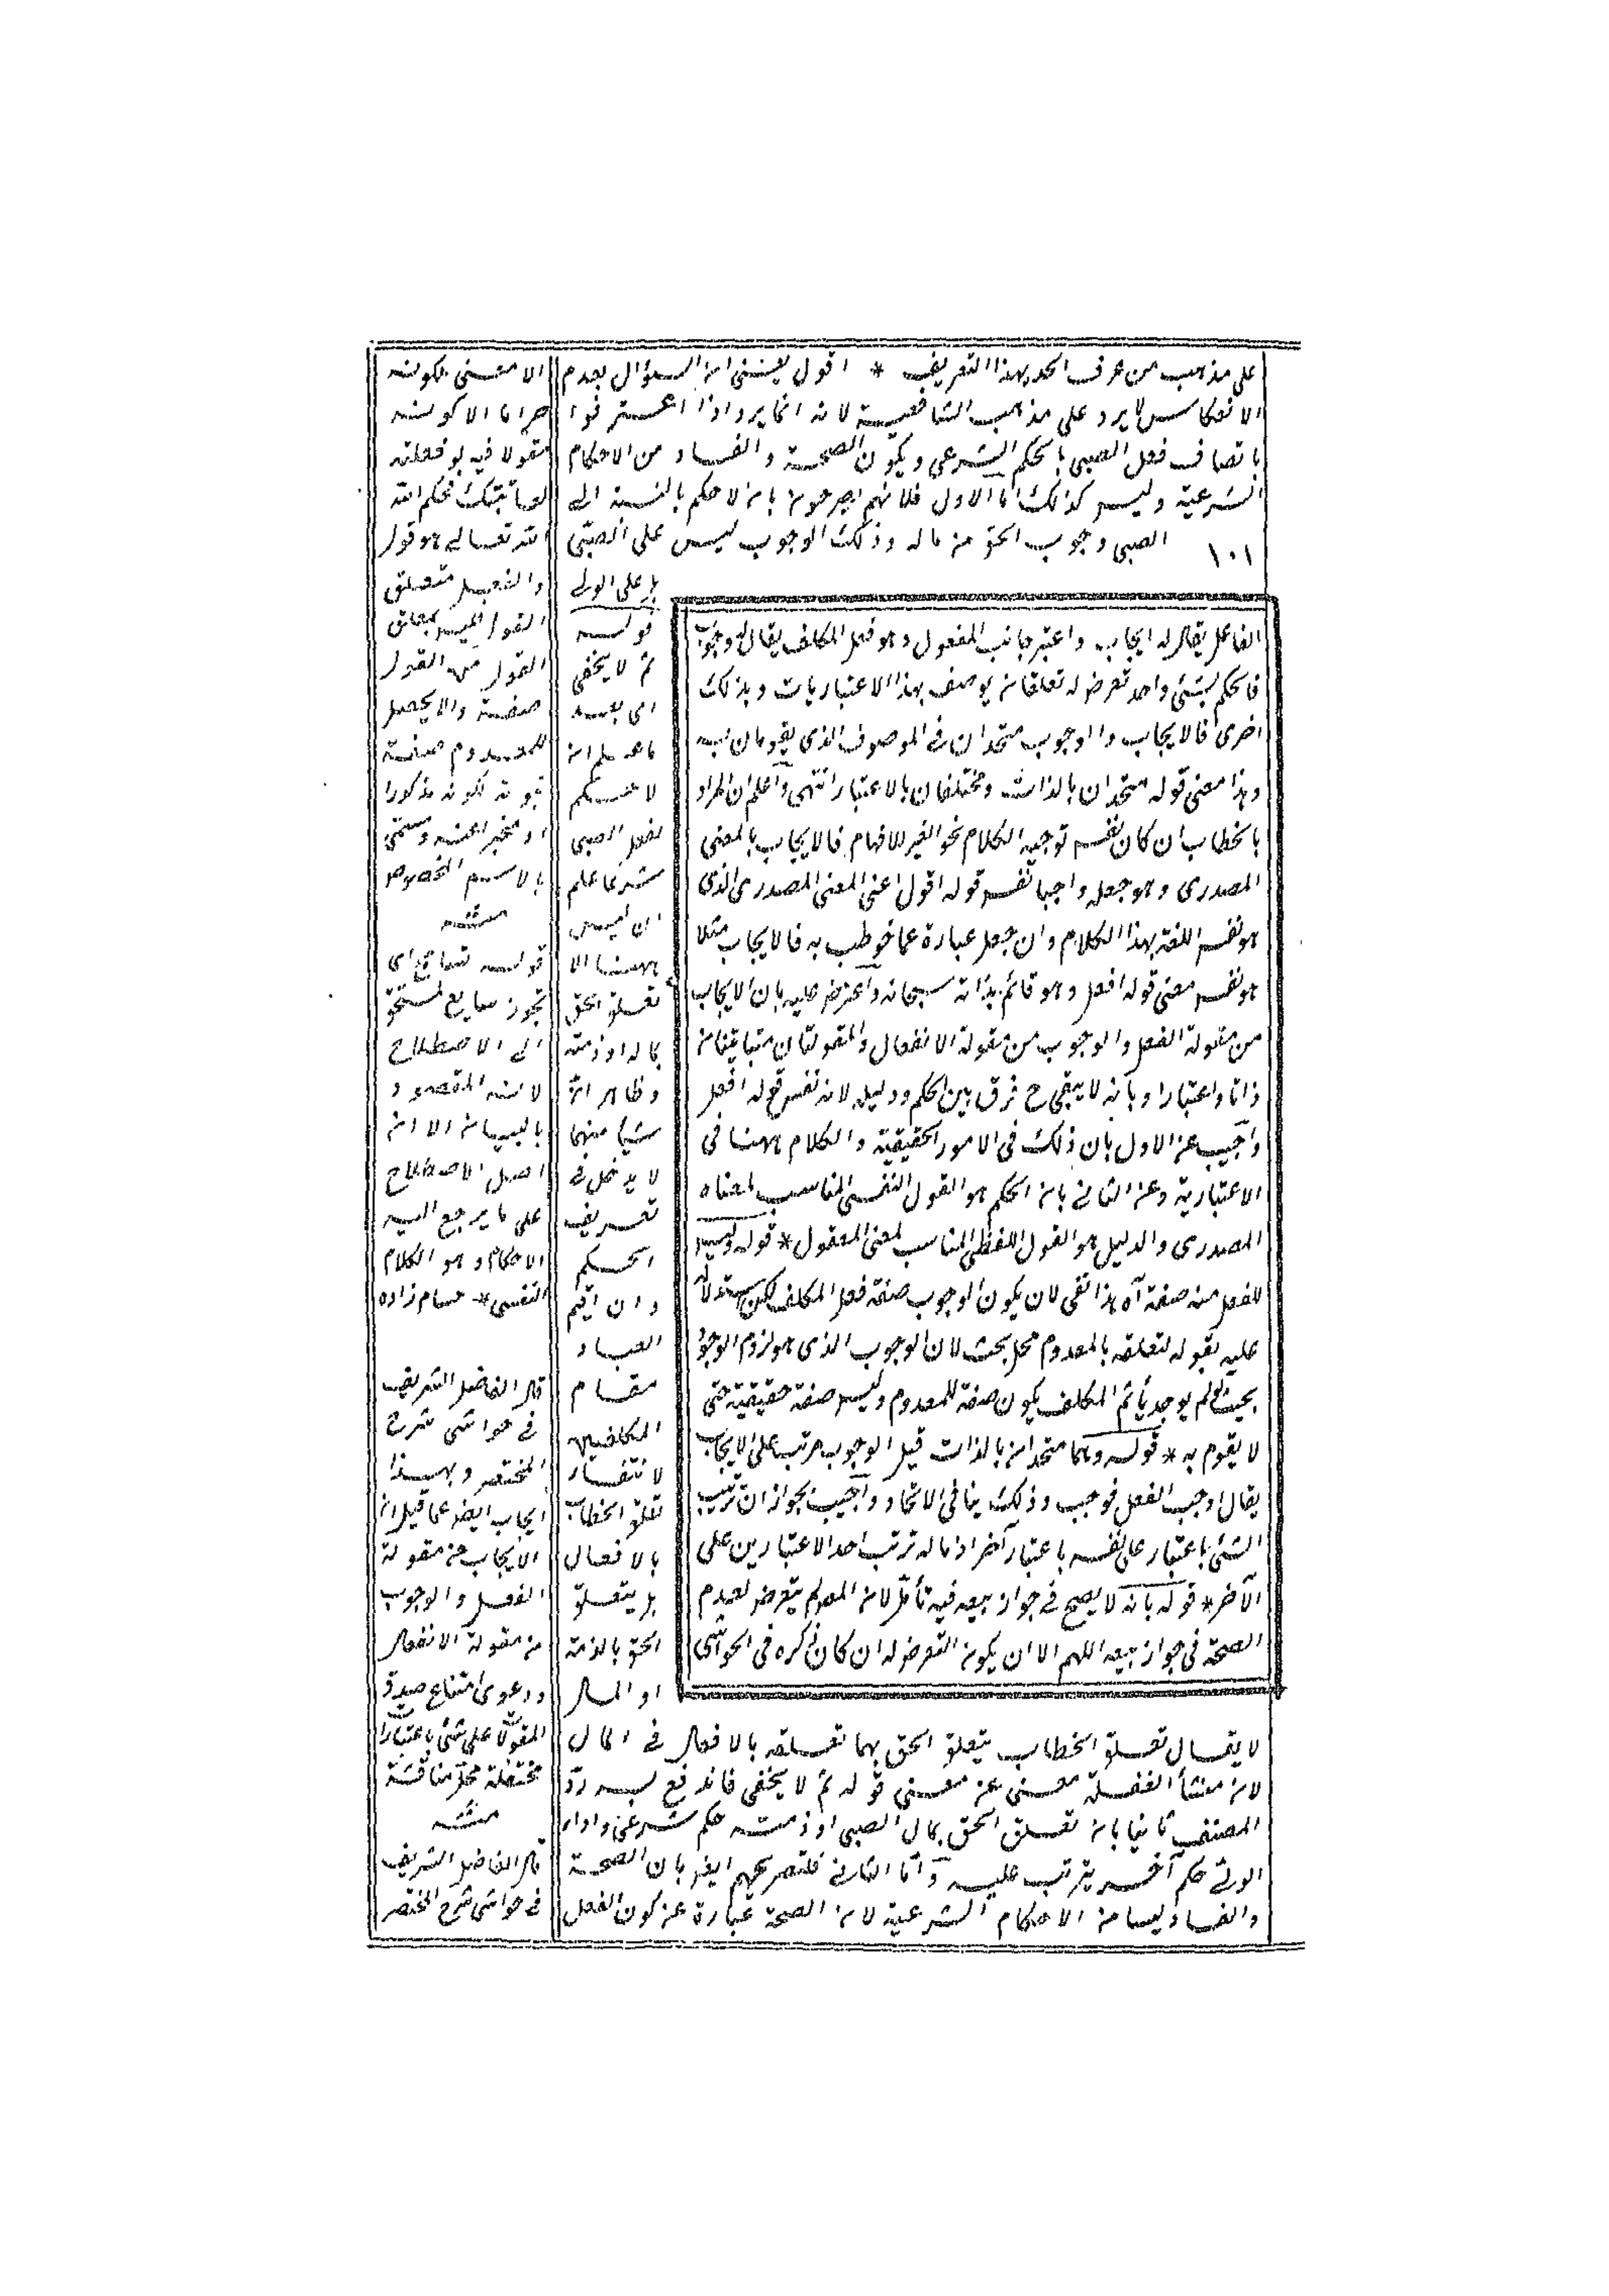 على مذهب من عرف الحد بهذا التعريف * اقول يعنى ان السؤال بعدم
الانعكاس لا يرد على مذهب الشافعية لانه انما يرد اذا اعترفوا
باتصاف فعل الصبى بالحكم الشرعى وبكون الصحة والفساد من الاحكام
الشرعية وليس كذلك اما الاول فلانهم صرحوا بان لا حكم بالنسبة الى
الصبى وجوب الحق من ماله وذلك الوجوب ليس على الصبى
١٠١
بل على الولى
قوله
ثم لا يخفى
اى بعد
ما علم ان
لا حكم
لفعل الصبى
شرعا علم
ان ليس
ههنا الا
تعلق الحق
بماله او ذمته
وظاهر ان
شيئا منهما
لا يدخل فى
تعريف
الحكم
وان اقيم
العباد
مقام
المكلفين
لانتفاء
تعلق الخطاب
بالافعال
بل يتعلق
الحق بالذمة
او المال
لا يقال تعلق الخطاب بتعلق الحق بهما تعلقه بالافعال فى المال
لان منشأ الغفلة معنى عن معنى قوله ثم لا يخفى فاندفع به ردّ
المصنف ثانيا بان تعلق الحق بمال الصبى او ذمته حكم شرعى واداء
الولى حكم آخر يترتب عليه واما الثانى فلتصريحهم ايضا بان الصحة
والفساد ليسا من الاحكام الشرعية لان الصحة عبارة عن كون الفعل
الفاعل يقال له ايجاب واعتبر جانب المفعول وهو فعل المكلف يقال له وجوب
فالحكم شئ واحد تعرض له تعلقان يوصف بهذا الاعتبار بات وبذلك
اخرى فالايجاب والوجوب متحدان فى الموصوف الذى يقومان به
وهذا معنى قوله متحدان بالذات ومختلفان بالاعتبار انتهى واعلم ان المراد
بالخطاب ان كان نفس توجيه الكلام نحو الغير للافهام فالايجاب بالمعنى
المصدرى وهو جعله واجبا نفس قوله اقول اعنى المعنى المصدرى الذى
هو نفس اللغة بهذا الكلام وان جعل عبارة عما خوطب به فالايجاب مثلا
هو نفس معنى قوله افعل وهو قائم بذاته سبحانه واعترض عليه بان الايجاب
من مقولة الفعل والوجوب من مقولة الانفعال والمقولتان متباينتان
ذاتا واعتبارا وبانه لا يبقى ح فرق بين الحكم ودليله لانه نفس قوله افعل
واجيب عن الاول بان ذلك فى الامور الحقيقية والكلام ههنا فى
الاعتبارية وعن الثانى بان الحكم هو القول النفسى المناسب لمعناه
المصدرى والدليل هو القول اللفظى المناسب لمعنى المعقول * قوله وليس
للفعل منه صفة آه هذا نفى لان يكون الوجوب صفة فعل المكلف لكن استدلاله
عليه بقوله لتعلقه بالمعدوم محل بحث لان الوجوب الذى هو لزوم الوجود
بحيث لو لم يوجد يأثم المكلف يكون صفة للمعدوم وليس صفة حقيقية حتى
لا يقوم به * قوله وهما متحدان بالذات قيل الوجوب مرتب على الايجاب
يقال اوجب الفعل فوجب وذلك ينافى الاتحاد واجيب بجواز ان ترتيب
الشئ باعتبار على نفسه باعتبار آخر اذ مآله ترتب احد الاعتبارين على
الآخر * قوله بانه لا يصح فى جواز بيعه فيه تأمل لان المص لم يتعرض لعدم
الصحة فى جواز بيعه اللهم الا ان يكون التعرض له ان كان ذكره فى الحواشى
الا معنى لكونه
حراما الا كونه
مقولا فيه لو فعلته
لعاقبتك فحكم الله
الله تعالى هو قول
والفعل متعلق
القول ليس لتعلق
القول من القول
صفة والا يحصل
للمعدوم صفة
ثبوتية لكونه مذكورا
او مخبرا عنه ومسمى
بالاسم المخصوص
منه
قوله تسامح اى
تجوز شايع مستحق
الى الاصطلاح
لانه المقصود
بالبيان الا ان
اصل الاصطلاح
على ما يرجع اليه
الاحكام وهو الكلام
النفسى * حسام زاده
قال الفاضل الشريف
فى حواشى شرح
المختصر وبهذا
يجاب ايضا عما قيل ان
الايجاب من مقولة
الفعل والوجوب
من مقولة الانفعال
ودعوى امتناع صدق
المقولات على شئ باعتبارات
مختلفة محل مناقشة
منه
قال الفاضل الشريف
فى حواشى شرح المختصر